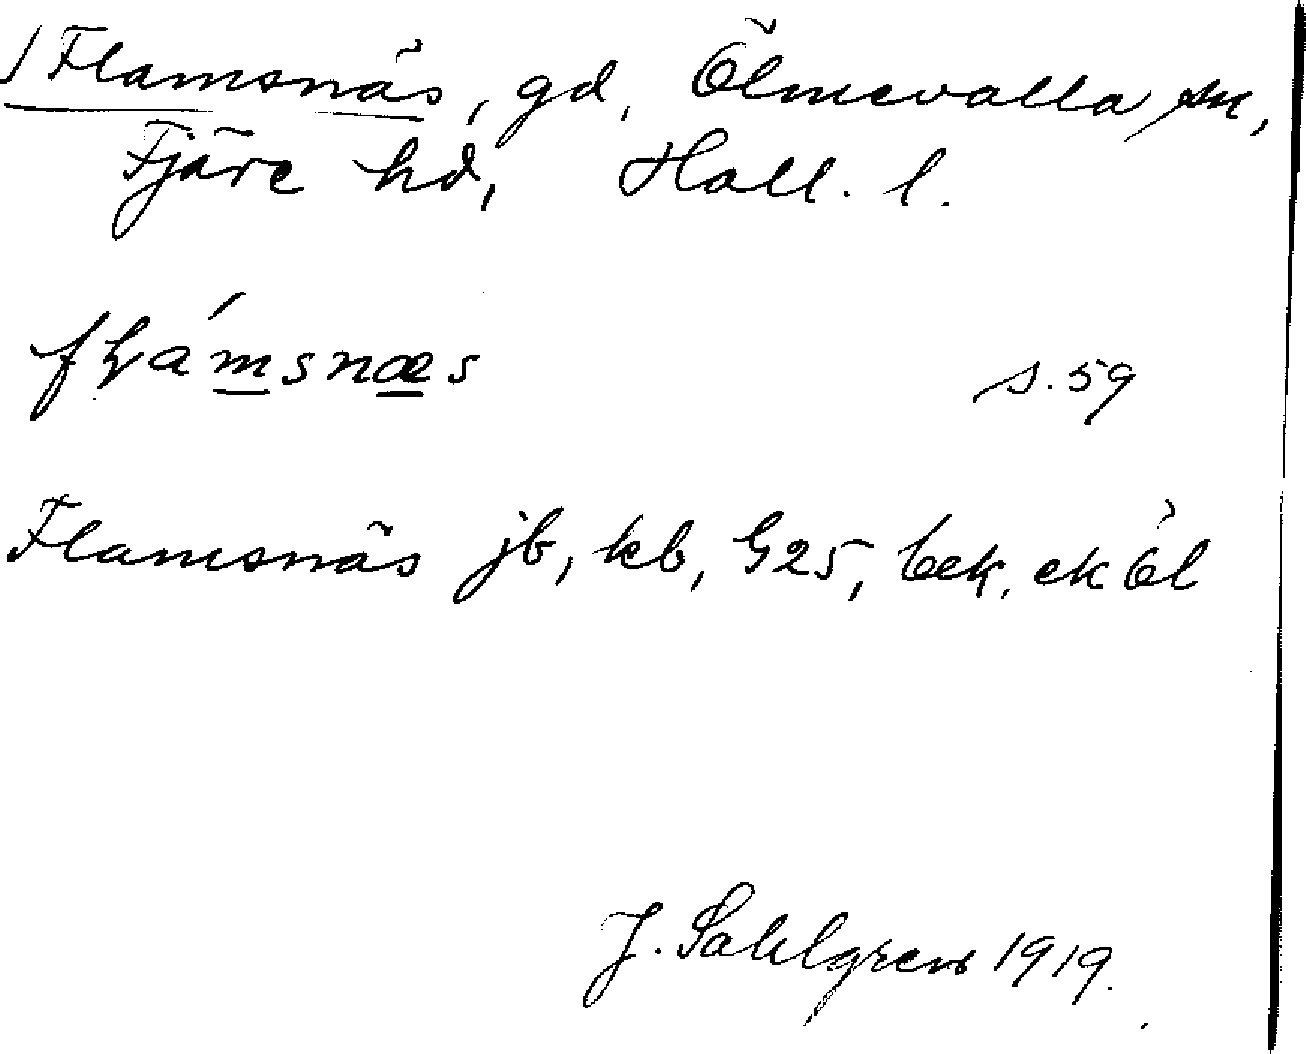 Flamsnäs, gd, Ölmevalla sn,
Fjäre hd, Hall. l.
fɬámsnæs s. 59
Flamsnäs jb, kb, G25, bek, ek Öl
J. Sahlgren 1919.